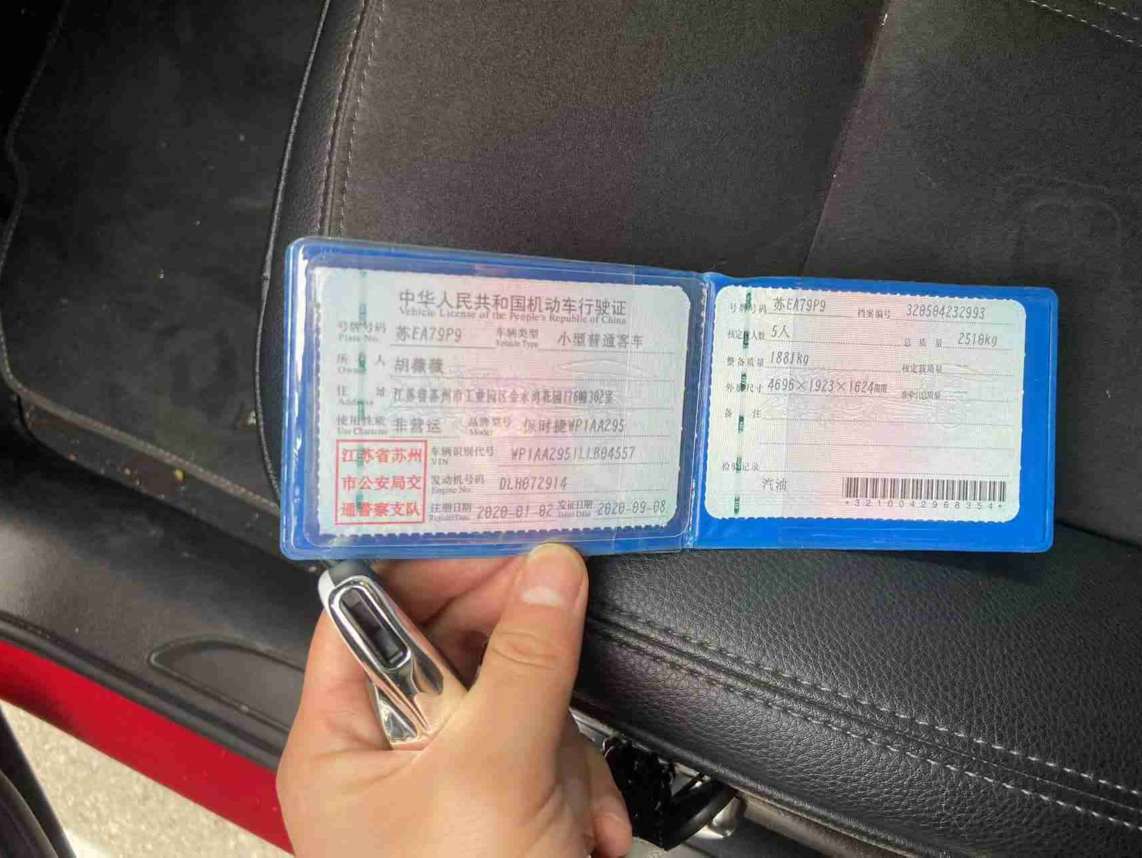 中华人民共和国机动车行驶证
Vehicle License of the People's Republic of China
号牌号码 苏EA79P9 车辆类型 小型普通客车
Plate No. Vehicle Type
所有人 胡薇薇
Owner
住址 江苏省苏州市工业园区金水湾花园176幢302室
Address
使用性质 非营运 品牌型号 保时捷WP1AA295
Use Character Model
江苏省苏州
市公安局交
通警察支队
车辆识别代号 WP1AA2951LLB04557
VIN
发动机号码 DLH072914
Engine No.
注册日期 2020-01-02 发证日期 2020-09-08
Register Date Issue Date
号牌号码 苏EA79P9 档案编号 320504232993
核定载人数 5人 总质量 2510kg
整备质量 1881kg 核定载质量
外廓尺寸 4696×1923×1624mm 准牵引总质量
备注
检验记录
汽油
*3210042968354*